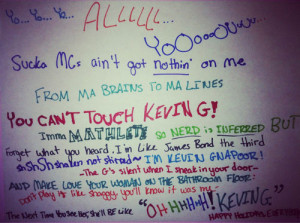 Yo... Yo... Yo...
ALLLLL...
YoOoooUuuu...
Sucka MCs ain't got nothin' on me
FROM MA BRAINS TO MA LINES
YOU CAN'T TOUCH KEVIN G!
I'mma MATHLETE so NERD is INFERRED BUT
Forget what you heard. I'm like James Bond the third
sh-sh-sh-shaken not stirred ~ I'M KEVIN GNAPOOR!
-The G's silent when I sneak in your door-
AND MAKE LOVE YOUR WOMAN ON THE BATHROOM FLOOR!
Don't play it like shaggy you'll know it was my-
The Next Time You See her, She'll BE Like "OHHHHH! KEVIN G"
HAPPY HOLIDAYS EVERYBODY